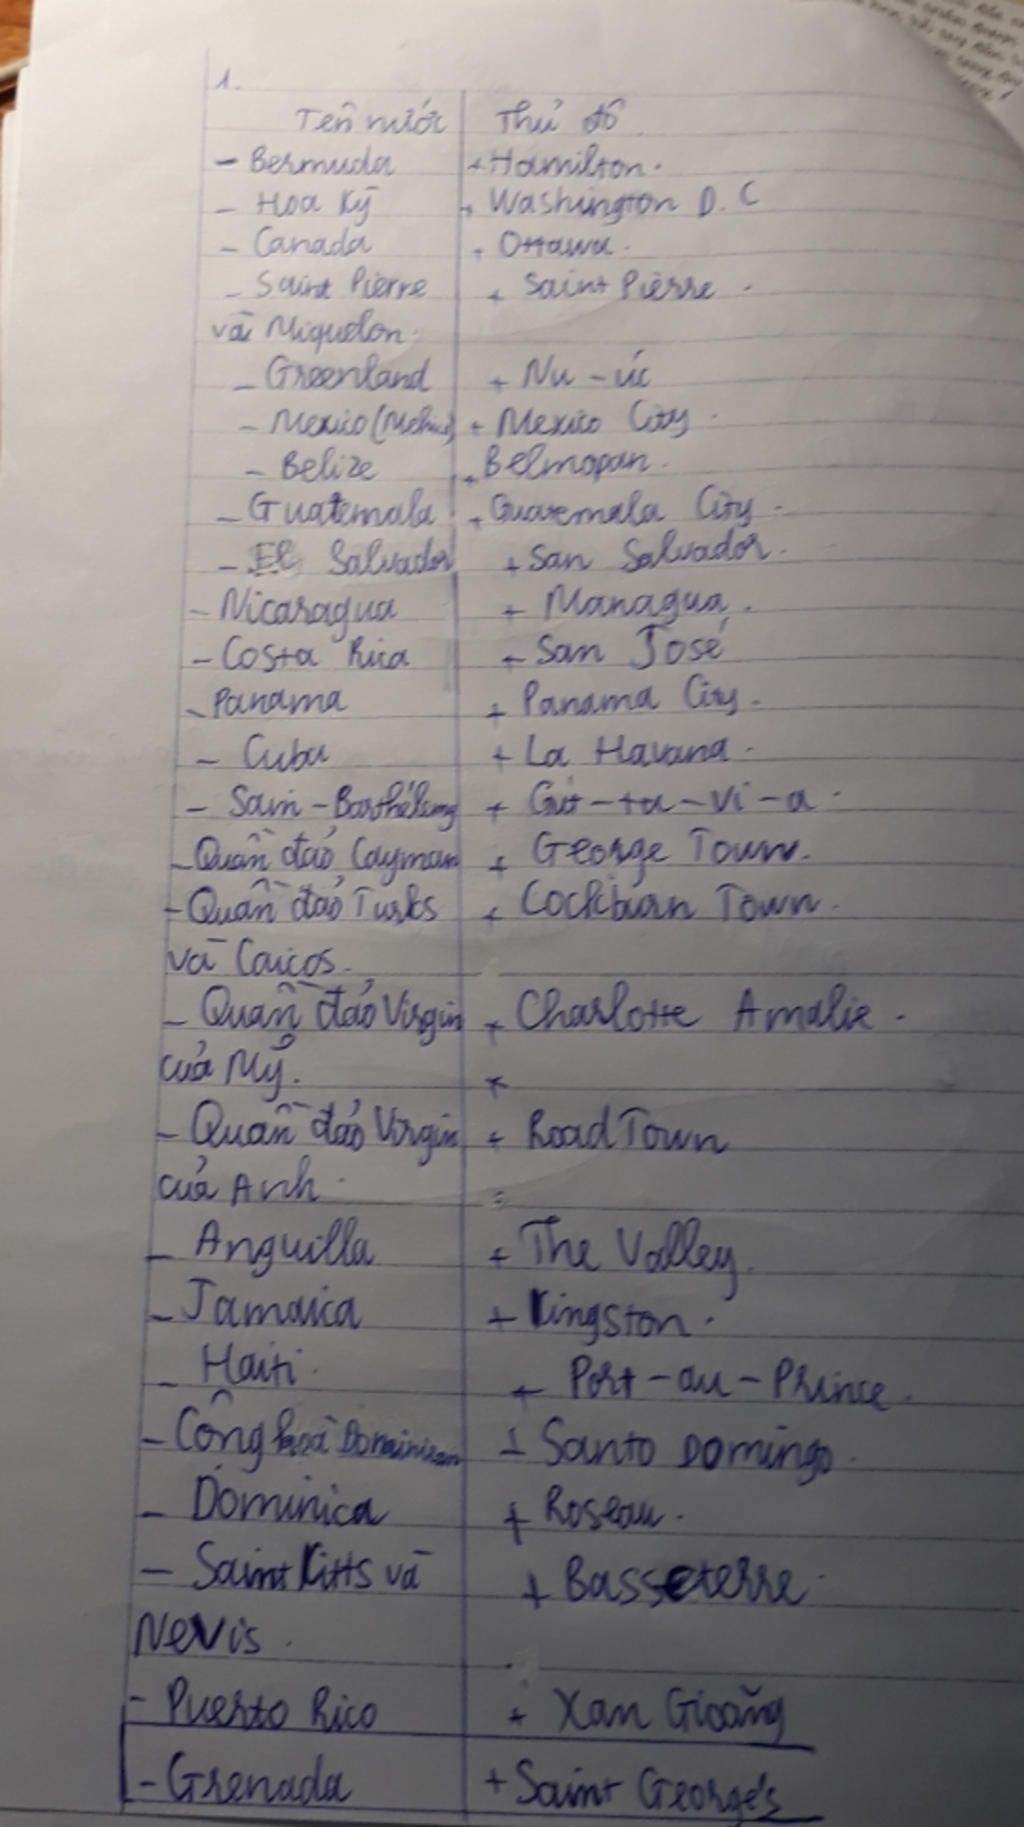 1.
Tên nước Thủ đô
- Bermuda + Hamilton.
- Hoa Kỳ + Washington D.C
- Canada + Ottawa.
- Saint Pierre + Saint Pierre.
và Miquelon.
- Greenland + Nu-úc
- Mexico (Mehico) + Mexico City.
- Belize + Belmopan.
- Guatemala + Guatemala City.
- El Salvador + San Salvador.
- Nicaragua + Managua.
- Costa Rica + San José
- Panama + Panama City.
- Cuba + La Havana.
- Sain-Barthélemy + Gut-ta-vi-a.
- Quần đảo Cayman + George Town.
- Quần đảo Turks + Cockburn Town.
và Caicos.
- Quần đảo Virgin + Charlotte Amalie.
của Mỹ. +
- Quần đảo Virgin + Road Town
của Anh.
- Anguilla + The Valley.
- Jamaica + Kingston.
- Haiti. + Port-au-Prince.
- Công hoà Dominican + Santo Domingo.
- Dominica + Roseau.
- Saint Kitts và + Basseterre.
Nevis.
- Puerto Rico + Xan Gioăng
- Grenada + Saint George's